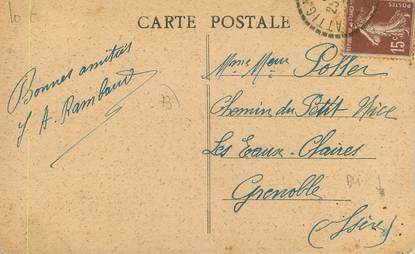 CARTE POSTALE
15c
POSTES
Bonnes amitiés
A. Rambaud
Mme Meur
Chemin du Petit Nice
Les Eaux-Claires
Grenoble
(Isère)